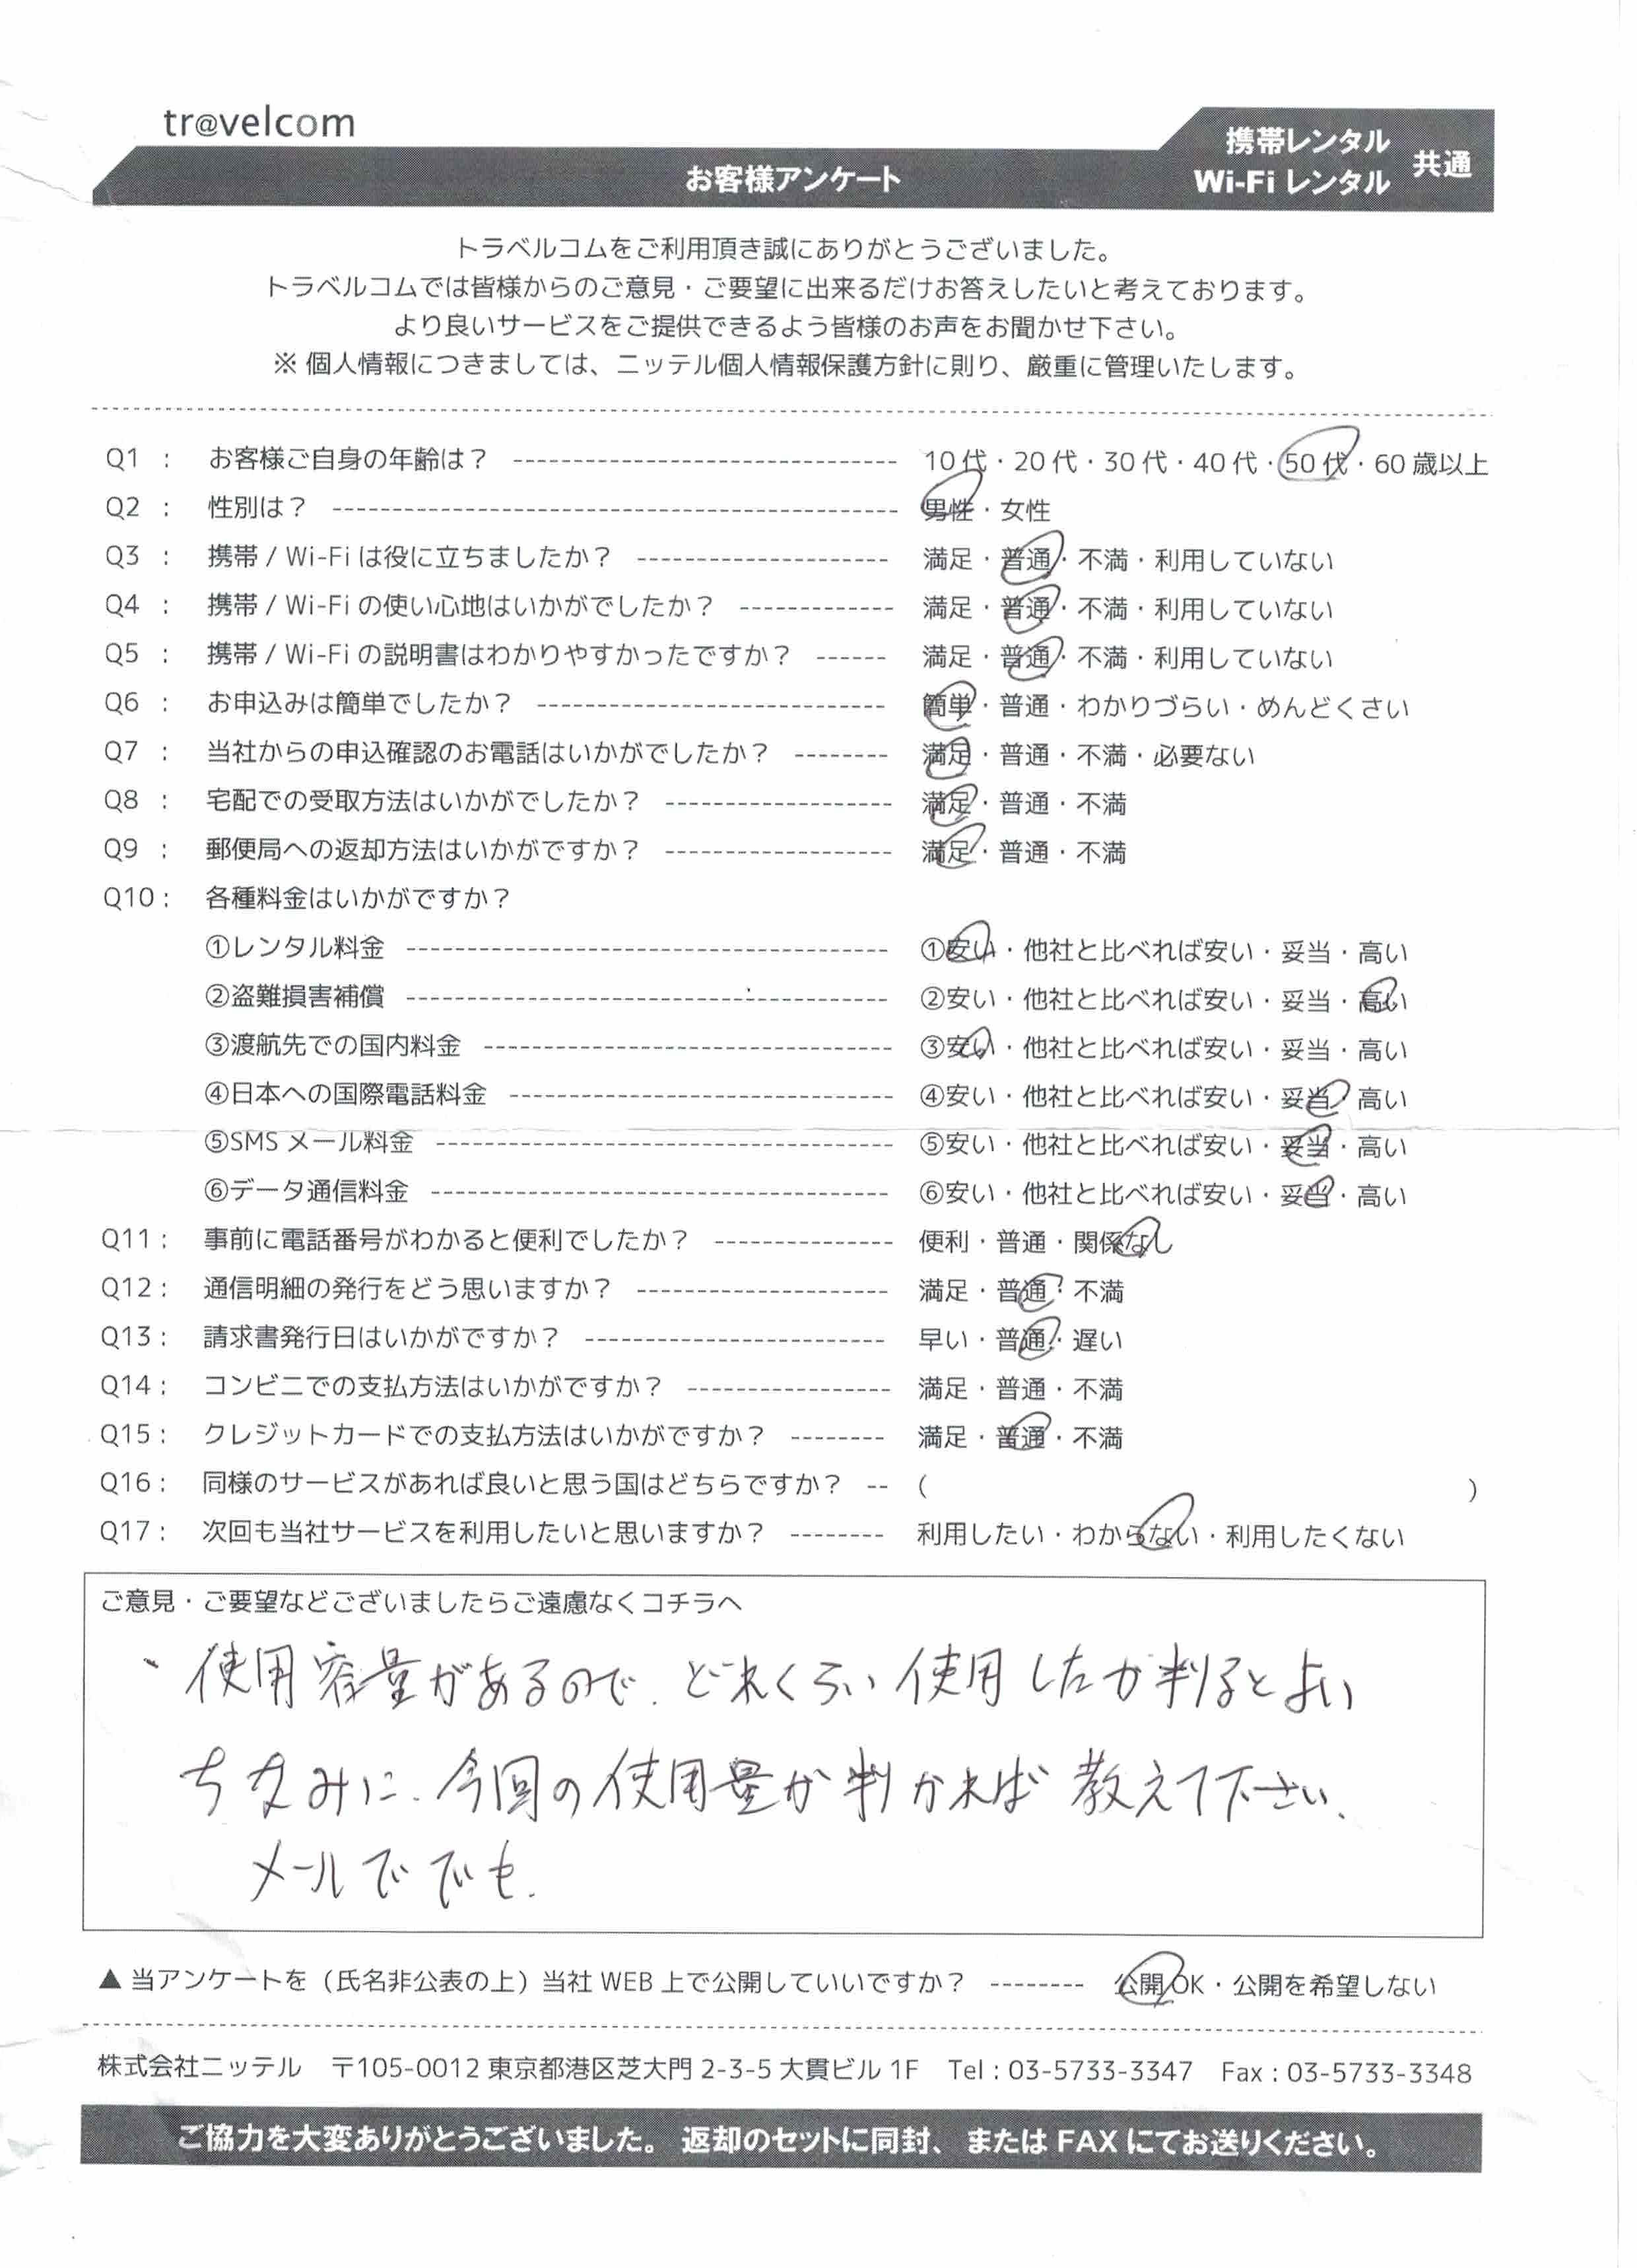 tr@velcom
お客様アンケート
携帯レンタル
Wi-Fi レンタル
共通
トラベルコムをご利用頂き誠にありがとうございました。
トラベルコムでは皆様からのご意見・ご要望に出来るだけお答えしたいと考えております。
より良いサービスをご提供できるよう皆様のお声をお聞かせ下さい。
※ 個人情報につきましては、ニッテル個人情報保護方針に則り、厳重に管理いたします。
Q1 : お客様ご自身の年齢は? 10代・20代・30代・40代・50代・60歳以上
Q2 : 性別は? 男性・女性
Q3 : 携帯 / Wi-Fi は役に立ちましたか? 満足・普通・不満・利用していない
Q4 : 携帯 / Wi-Fi の使い心地はいかがでしたか? 満足・普通・不満・利用していない
Q5 : 携帯 / Wi-Fi の説明書はわかりやすかったですか? 満足・普通・不満・利用していない
Q6 : お申込みは簡単でしたか? 簡単・普通・わかりづらい・めんどくさい
Q7 : 当社からの申込確認のお電話はいかがでしたか? 満足・普通・不満・必要ない
Q8 : 宅配での受取方法はいかがでしたか? 満足・普通・不満
Q9 : 郵便局への返却方法はいかがですか? 満足・普通・不満
Q10 : 各種料金はいかがですか?
①レンタル料金 ①安い・他社と比べれば安い・妥当・高い
②盗難損害補償 ②安い・他社と比べれば安い・妥当・高い
③渡航先での国内料金 ③安い・他社と比べれば安い・妥当・高い
④日本への国際電話料金 ④安い・他社と比べれば安い・妥当・高い
⑤SMS メール料金 ⑤安い・他社と比べれば安い・妥当・高い
⑥データ通信料金 ⑥安い・他社と比べれば安い・妥当・高い
Q11 : 事前に電話番号がわかると便利でしたか? 便利・普通・関係なし
Q12 : 通信明細の発行をどう思いますか? 満足・普通・不満
Q13 : 請求書発行日はいかがですか? 早い・普通・遅い
Q14 : コンビニでの支払方法はいかがですか? 満足・普通・不満
Q15 : クレジットカードでの支払方法はいかがですか? 満足・普通・不満
Q16 : 同様のサービスがあれば良いと思う国はどちらですか? ( )
Q17 : 次回も当社サービスを利用したいと思いますか? 利用したい・わからない・利用したくない
ご意見・ご要望などございましたらご遠慮なくコチラへ
、使用容量があるので、どれくらい使用したか判るとよい
ちなみに、今回の使用量が判かれば教えて下さい、
メールででも.
▲ 当アンケートを(氏名非公表の上)当社 WEB 上で公開していいですか? 公開OK・公開を希望しない
株式会社ニッテル 〒105-0012 東京都港区芝大門 2-3-5 大貫ビル 1F Tel : 03-5733-3347 Fax : 03-5733-3348
ご協力を大変ありがとうございました。返却のセットに同封、または FAX にてお送りください。